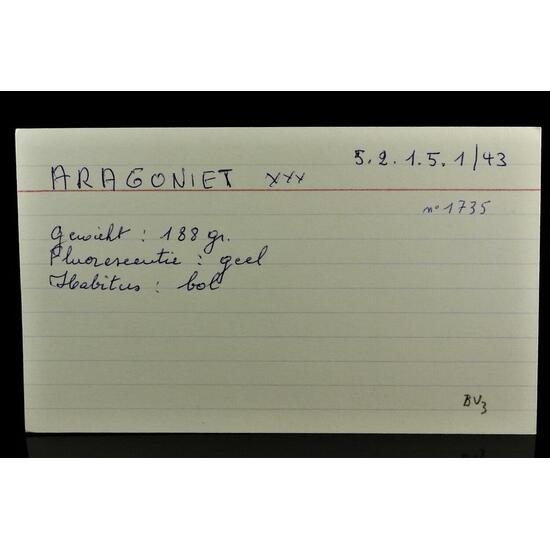 5.2.1.5.1/43
ARAGONIET xxx
n° 1735
Gewicht : 188 gr.
Fluorescentie : geel
Habitus : bol
BV3